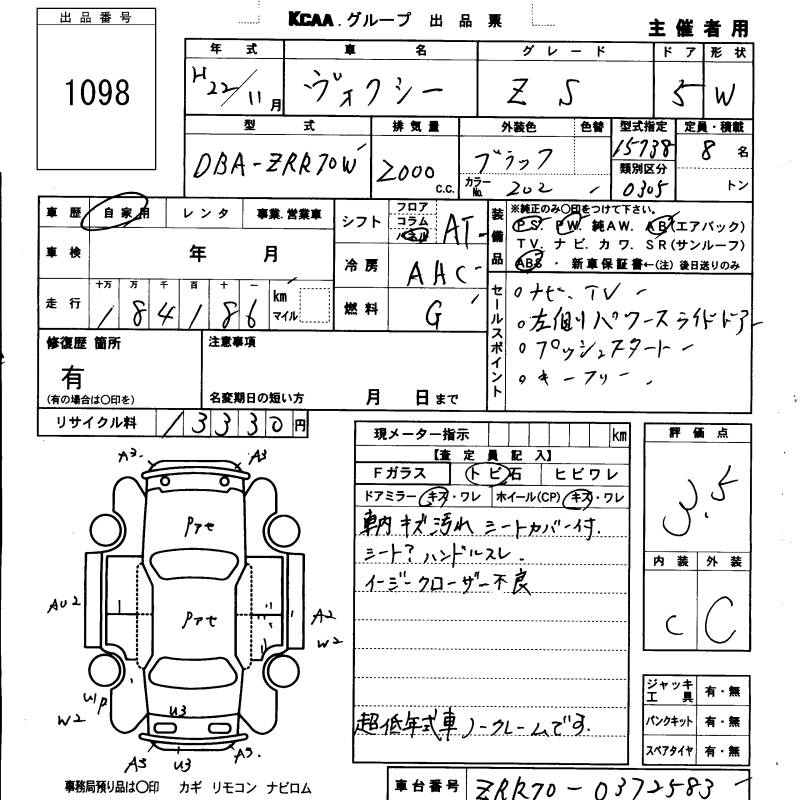 KCAA.グループ 出品票
主催者用
出品番号
1098
年式 車名 グレード ドア 形状
H22/11月 ヴォクシー ZS 5 W
型式 排気量 外装色 色替 型式指定 定員・積載
DBA-ZRR70W 2000c.c. ブラック 15738 8名
カラーNo. 202 類別区分 0305 トン
車歴 自家用 レンタ 事業.営業車
シフト フロア コラム パネル AT
装備品 ※純正のみ〇印をつけて下さい。
PS. PW. 純AW. AB(エアバック)
TV. ナビ. カワ. SR(サンルーフ)
ABS ・ 新車保証書←(注) 後日送りのみ
車検 年 月
冷房 AAC
走行 十万 万 千 百 十 一
184186 km マイル
燃料 G
セールスポイント
ナビ、TV
左側リパワースライドドアー
プッシュスタート
キーフリー
修復歴 箇所
有
(有の場合は〇印を)
注意事項
名変期日の短い方 月 日まで
リサイクル料 13330円
現メーター指示 km
【査定員記入】
Fガラス トビ石 ヒビワレ
ドアミラー キズ・ワレ ホイール(CP) キズ・ワレ
車内キズ汚れ シートカバー付.
シート?ハンドルスレ.
イージークローザー不良
超低年式車ノークレームです.
評価点
3.5
内装 外装
C C
ジャッキ工具 有・無
パンクキット 有・無
スペアタイヤ 有・無
A3 A3
Pアセ
AU2
Pアセ
A2
W2
U1P
W2
U3
A3 U3 A3.
事務局預り品は〇印 カギ リモコン ナビロム
車台番号 ZRR70-0372583